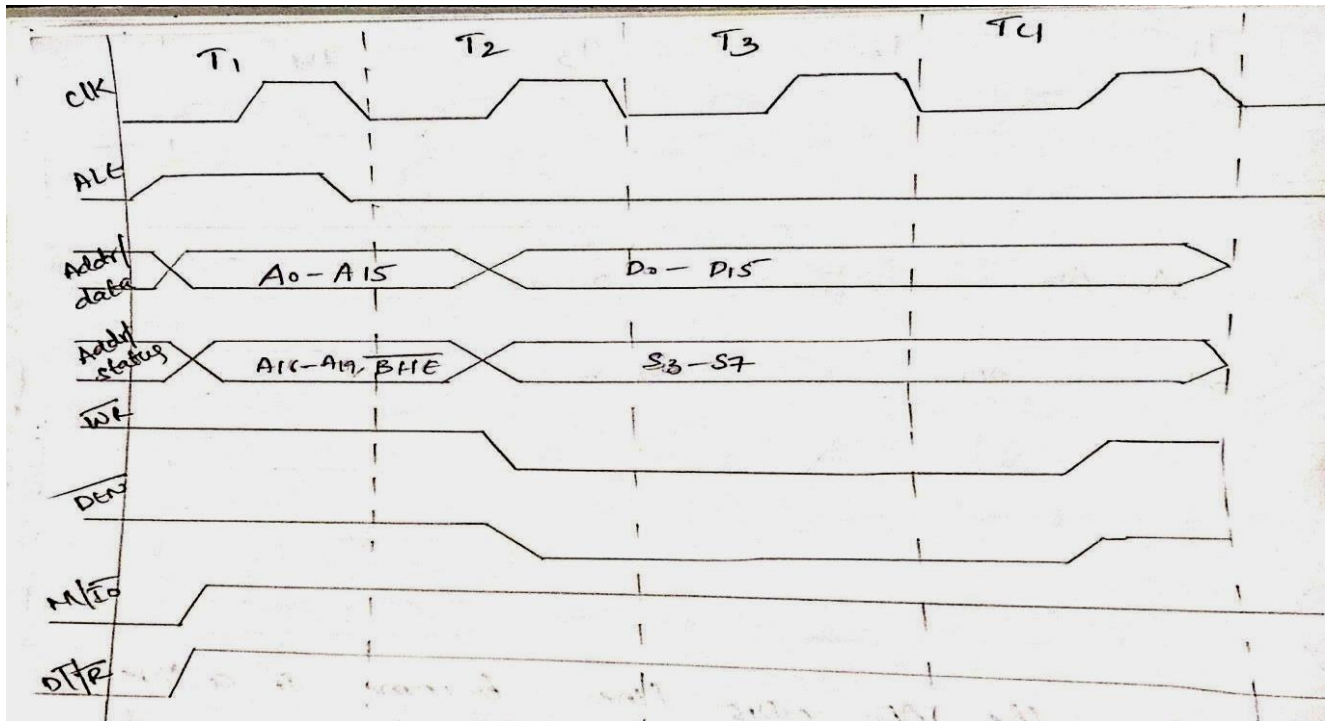 T1 T2 T3 T4
CLK
ALE
Addr/
data
A0-A15 D0-D15
Addr/
status
A16-A19, B̅H̅E̅ S3-S7
W̅R̅
D̅E̅N̅
M/I̅O̅
DT/R̅